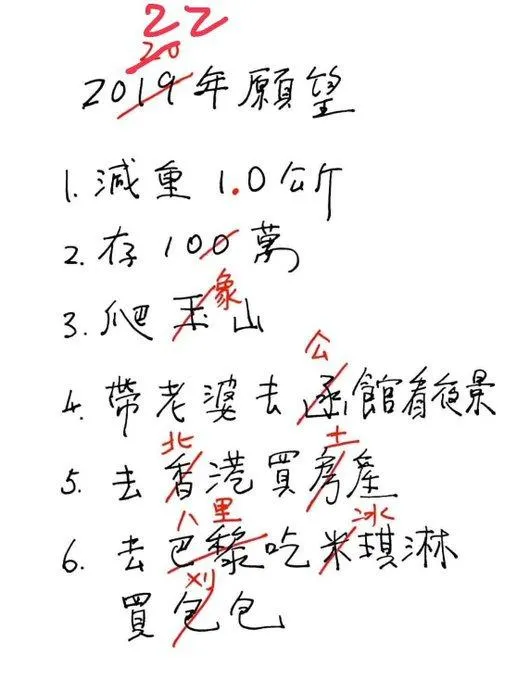 22
20
2019年願望
1. 減重 1.0公斤
2. 存 100萬
象
3. 爬玉山
公
4. 帶老婆去函館看夜景
北 土
5. 去香港買房產
八里 冰
6. 去巴黎吃米琪淋
刈
買包包